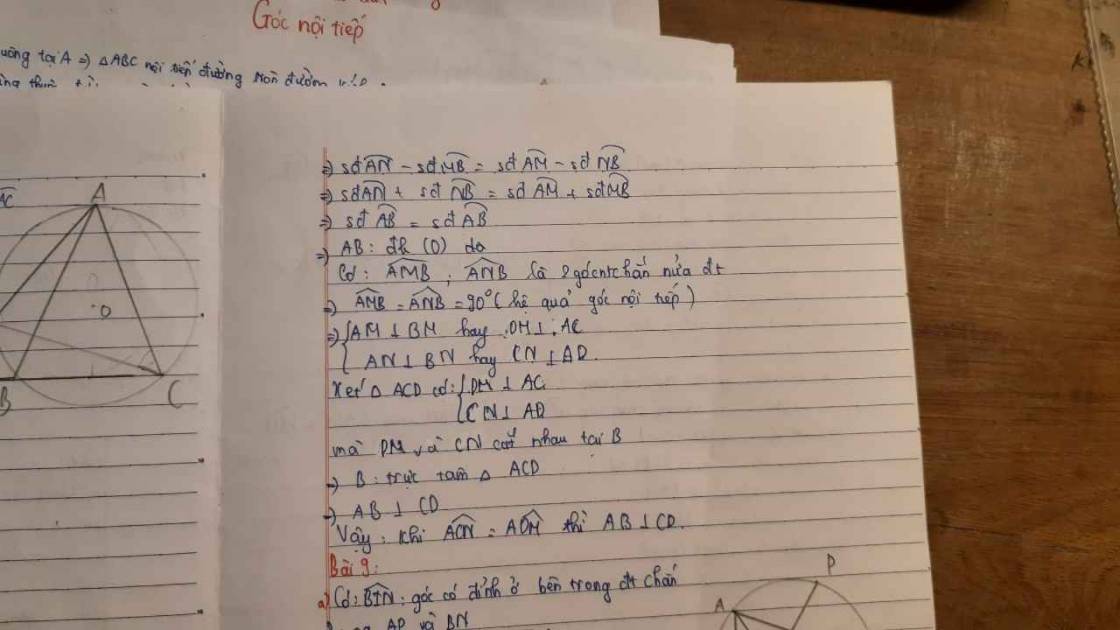 Góc nội tiếp
uông tại A => △ABC nội tiếp đường tròn đường
AC
A
O
B
C
=> sđAN - sđMB = sđ AM - sđ NB
=> sđAN + sđ NB = sđ AM + sđMB
=> sđ AB = sđ AB
=> AB: đk (O) do
Có: AMB ; ANB là 2 gócnt chắn nửa đt
=> AMB = ANB = 90° (hệ quả góc nội tiếp)
=> { AM ⊥ BM hay DM ⊥ AC
AN ⊥ BN hay CN ⊥ AD.
Xét △ ACD có: { DM ⊥ AC
CN ⊥ AD
mà DM và CN cắt nhau tại B
=> B: trực tâm △ ACD
=> AB ⊥ CD
Vậy: khi ACN = ADM thì AB ⊥ CD.
Bài 9:
a) Có: BIN: góc có đỉnh ở bên trong đt chắn
AP và BN
P
A